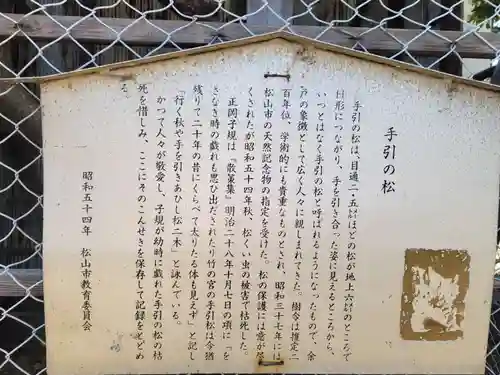 手引の松
手引の松は、目通二・五㍍ほどの松が地上六㍍のところで
円形につながり、手を引き合った姿に見えるところから、
いつとはなく手引の松と呼ばれるようになったもので、余
戸の象徴として広く人々に親しまれてきた。樹令は推定二
百年位、学術的にも貴重なものとされ、昭和三十七年には
松山市の天然記念物の指定を受けた。松の保護には意が尽
くされたが昭和五十四年秋、松くい虫の被害で枯死した。
正岡子規は『散策集』明治二十八年十月七日の項に「を
さなき時の戯れも思ひ出だされたり竹の宮の手引松は今猶
残りて二十年の昔にくらべて太りたる体も見えず」と記し
「行く秋や手を引きあひし松二木」と詠んでいる。
かつて人々が敬愛し、子規が幼時に戯れた手引の松の枯
死を惜しみ、ここにそのこんせきを保存して記録をとどめ
る。
昭和五十四年 松山市教育委員会